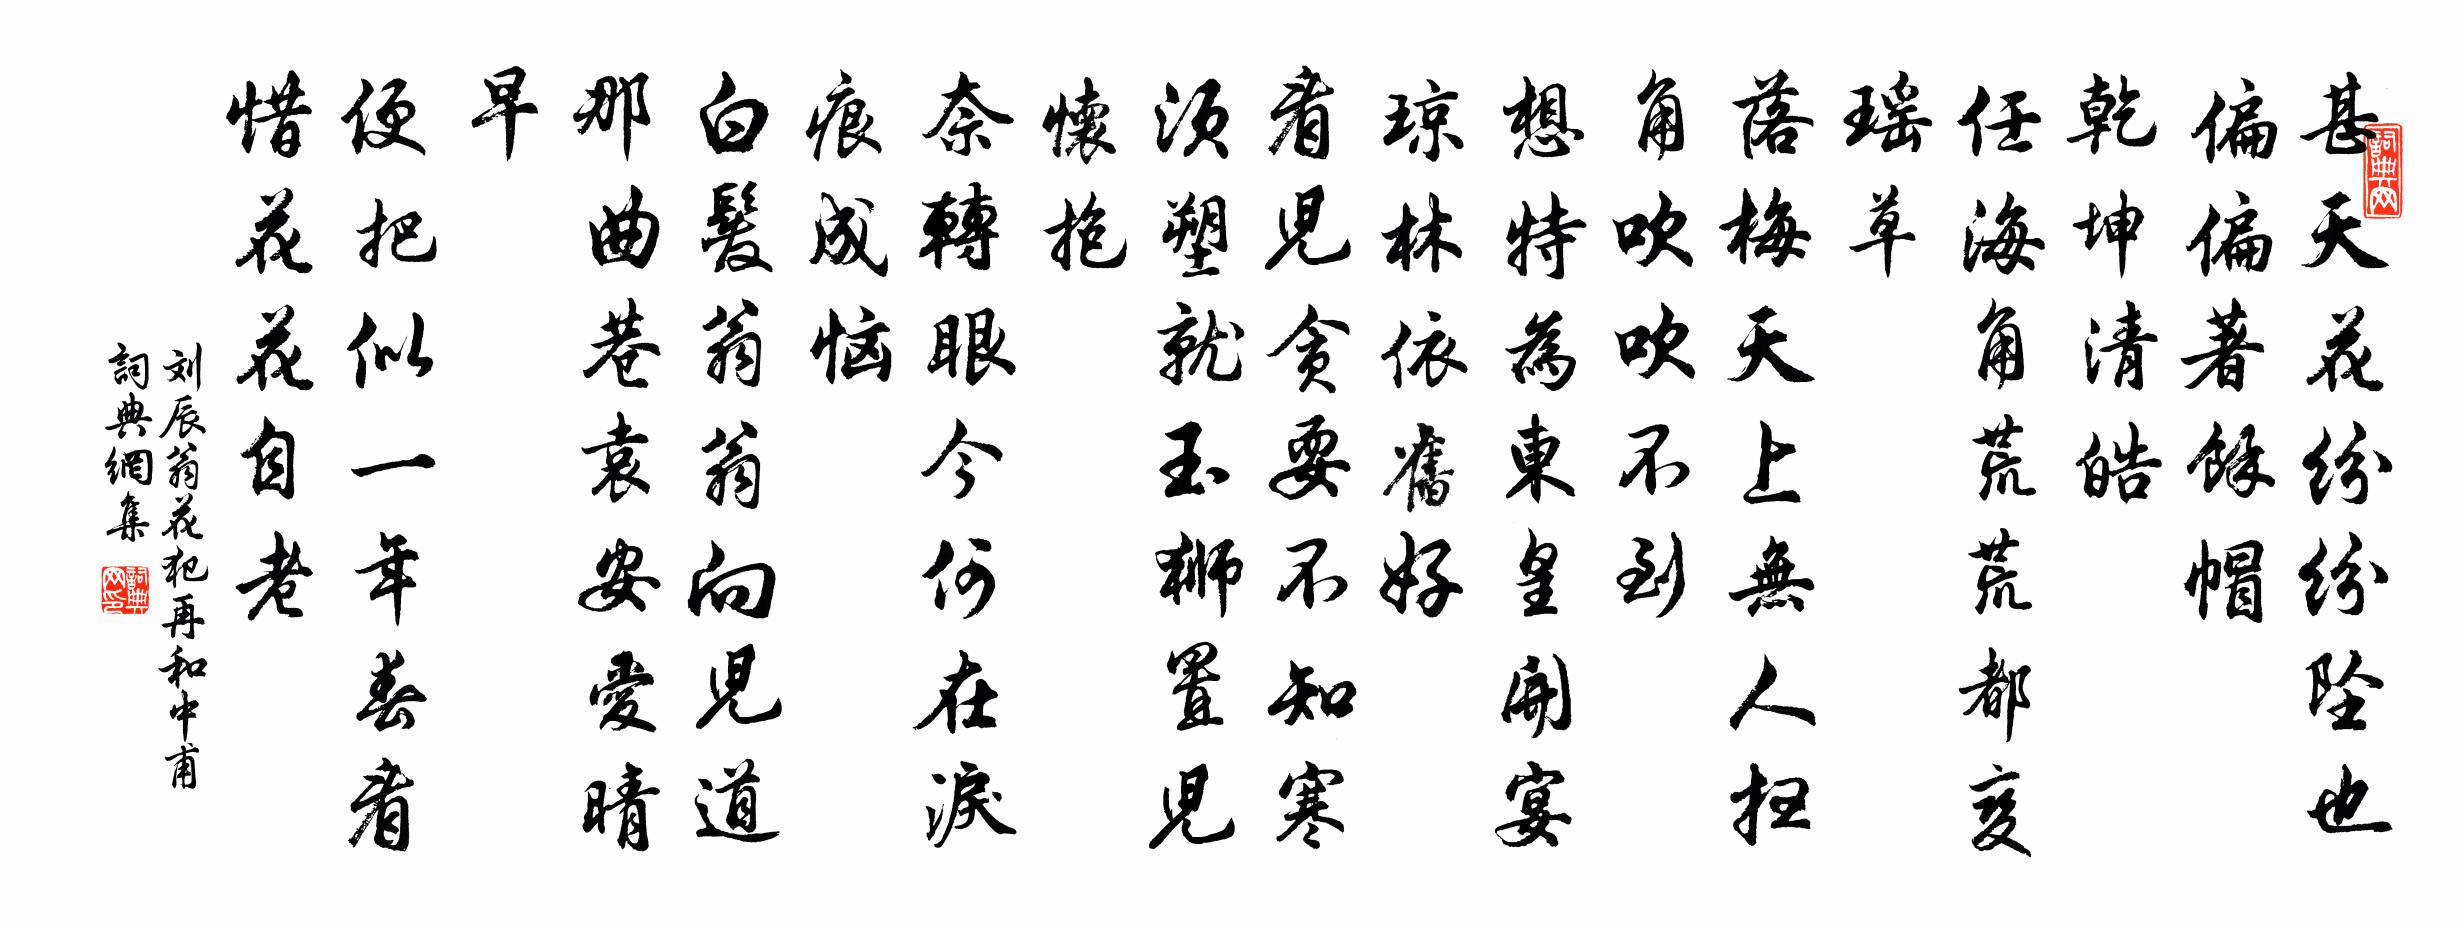 甚天花紛紛坠也
偏偏著餘帽
乾坤清皓
任海角荒荒都变
瑶草
落梅天上無人扫
角吹吹不到
想特為東皇開宴
琼林依舊好
看兒貪耍不知寒
须塑就玉狮置兒
懷抱
奈轉眼今何在淚
痕成恼
白髮翁翁向兒道
那曲巷袁安愛晴
早
便把似一年春看
惜花花自老
刘辰翁花犯再和中甫
詞典網集
詞典网
詞典网印